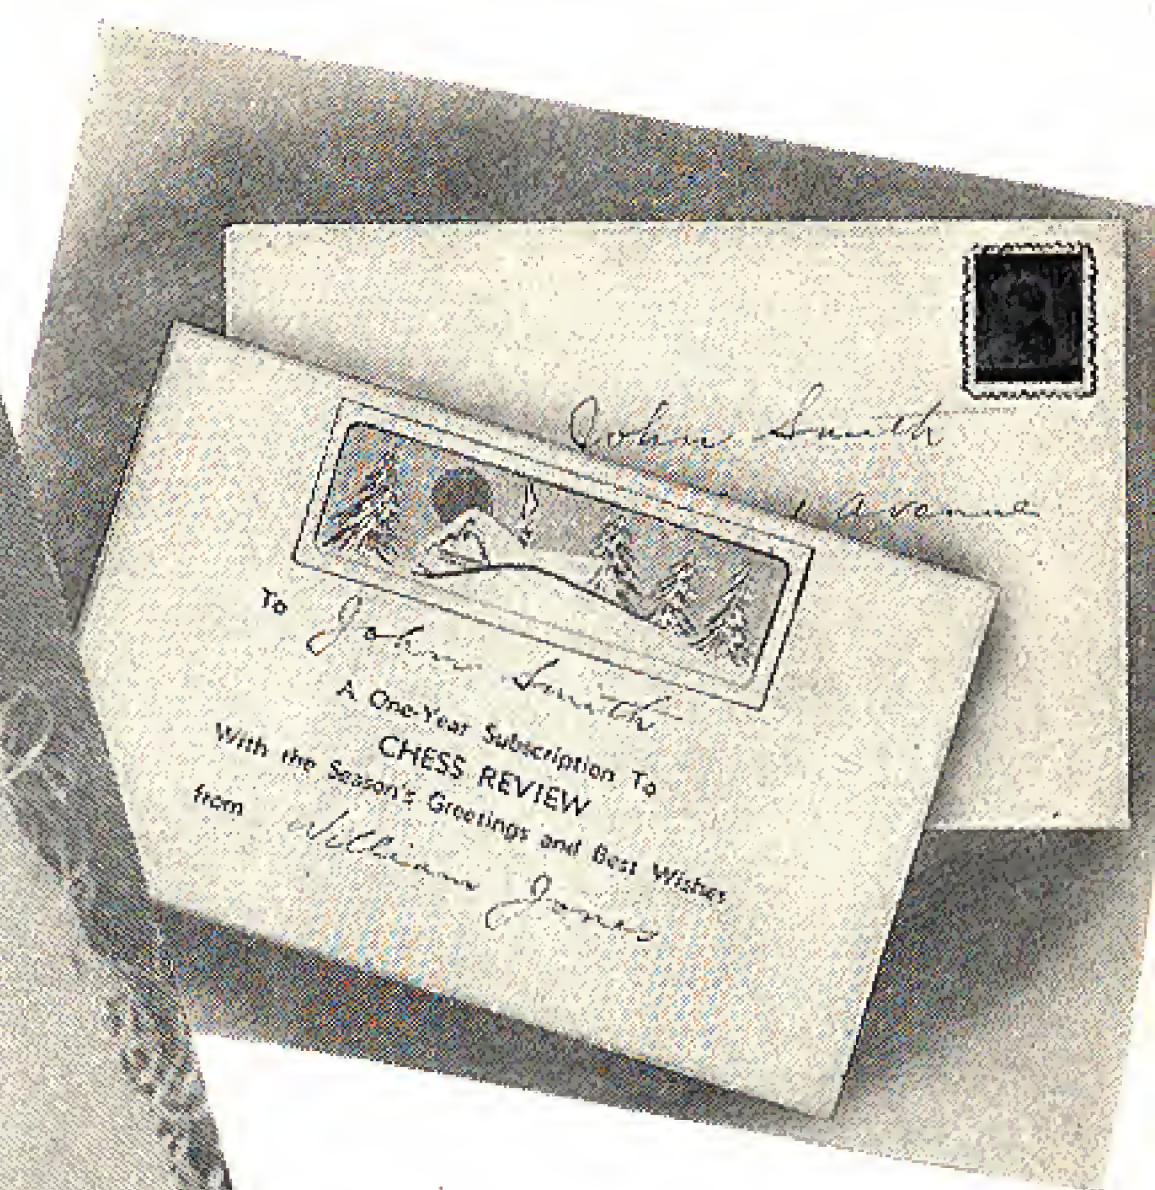 John Smith
Avenue
To John Smith
A One-Year Subscription To
CHESS REVIEW
With the Season's Greetings and Best Wishes
from William Jones